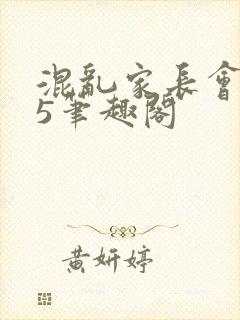 混亂家長會
5筆趣閣
黃妍婷